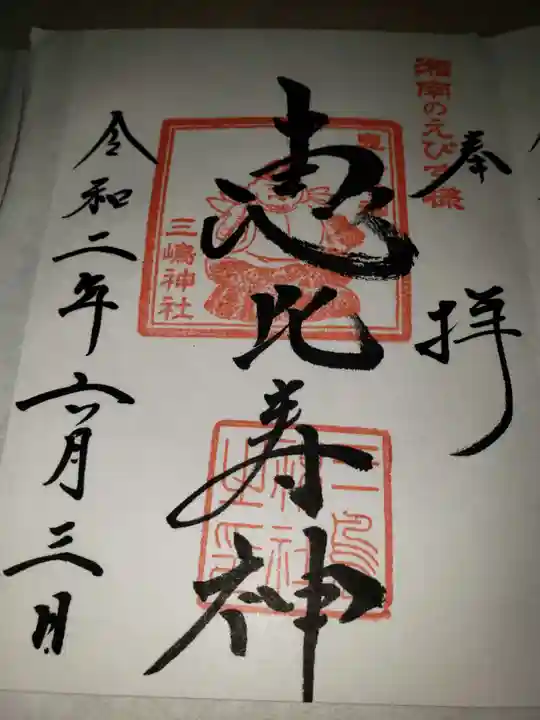 湘南のえびす様
奉拝
恵比寿神
三嶋神社
令和二年六月三日